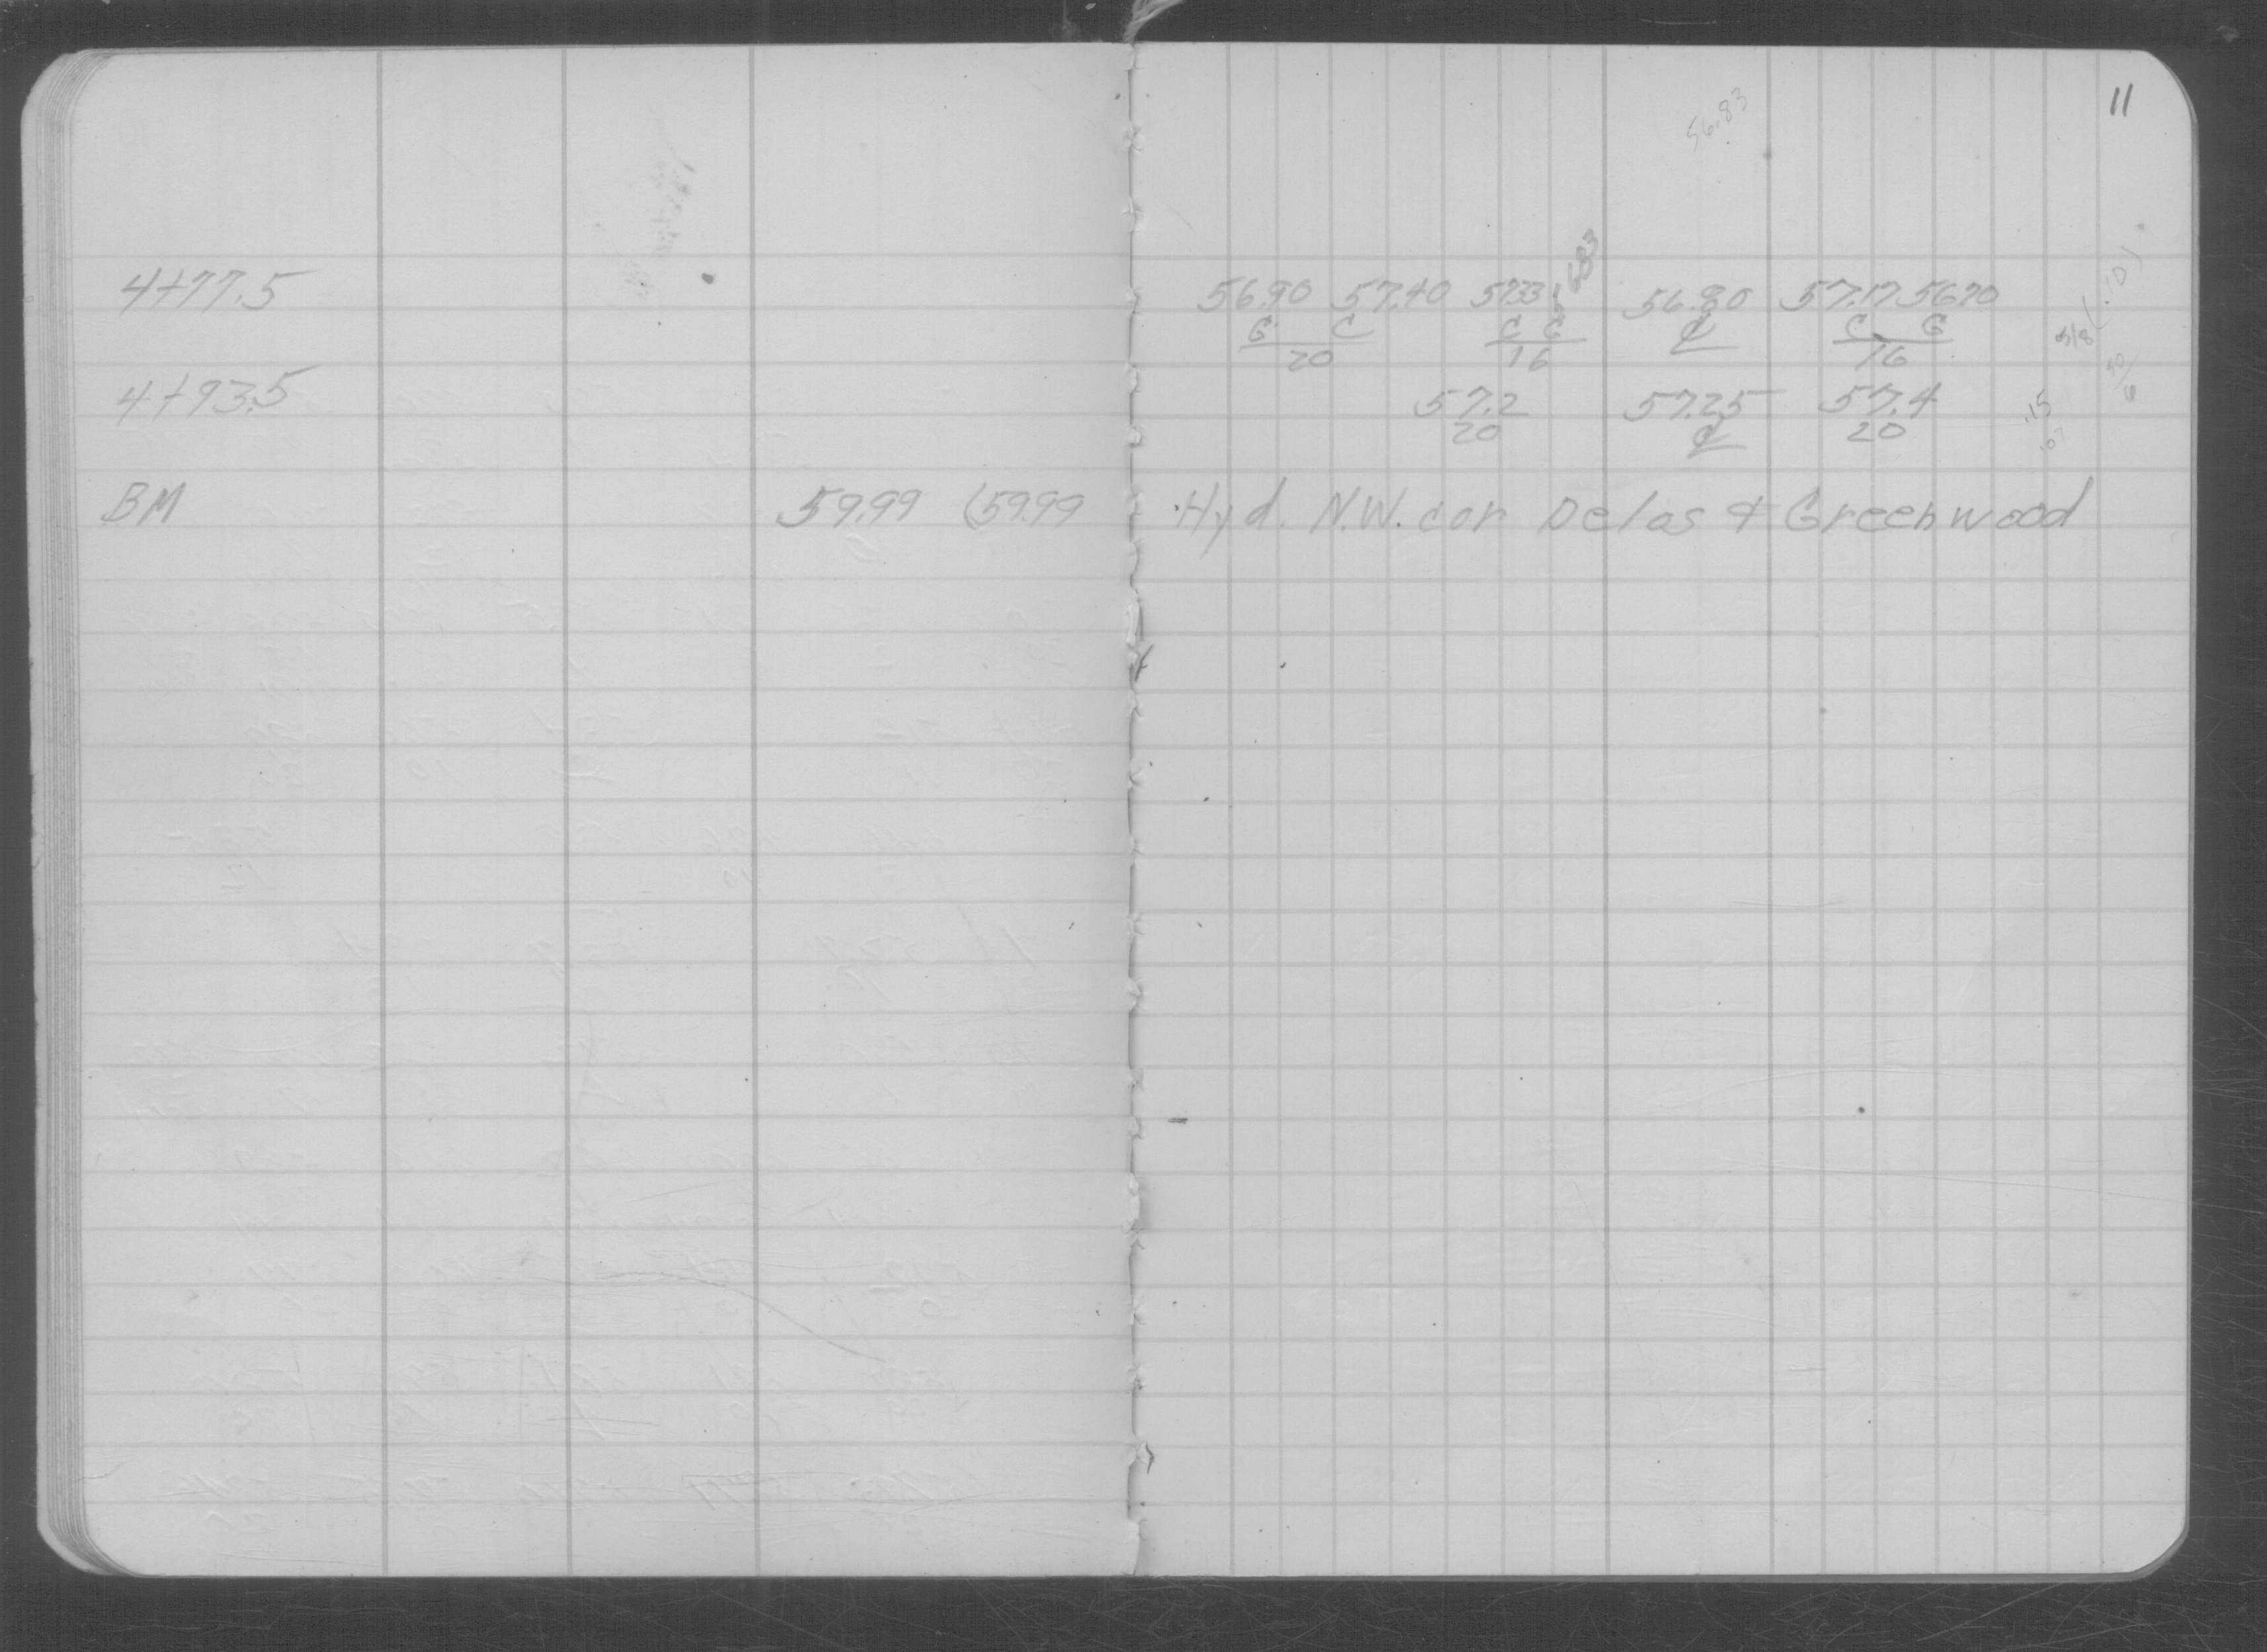 11
56.83
4+77.5 56.90 57.40 57.33 56.80 57.17 56.70
G C C G ℄ C G
20 16 16
4+93.5 57.2 57.25 57.4 .15
20 ℄ 20
BM 59.99 (59.99 Hyd. N.W. cor Delas & Greenwood